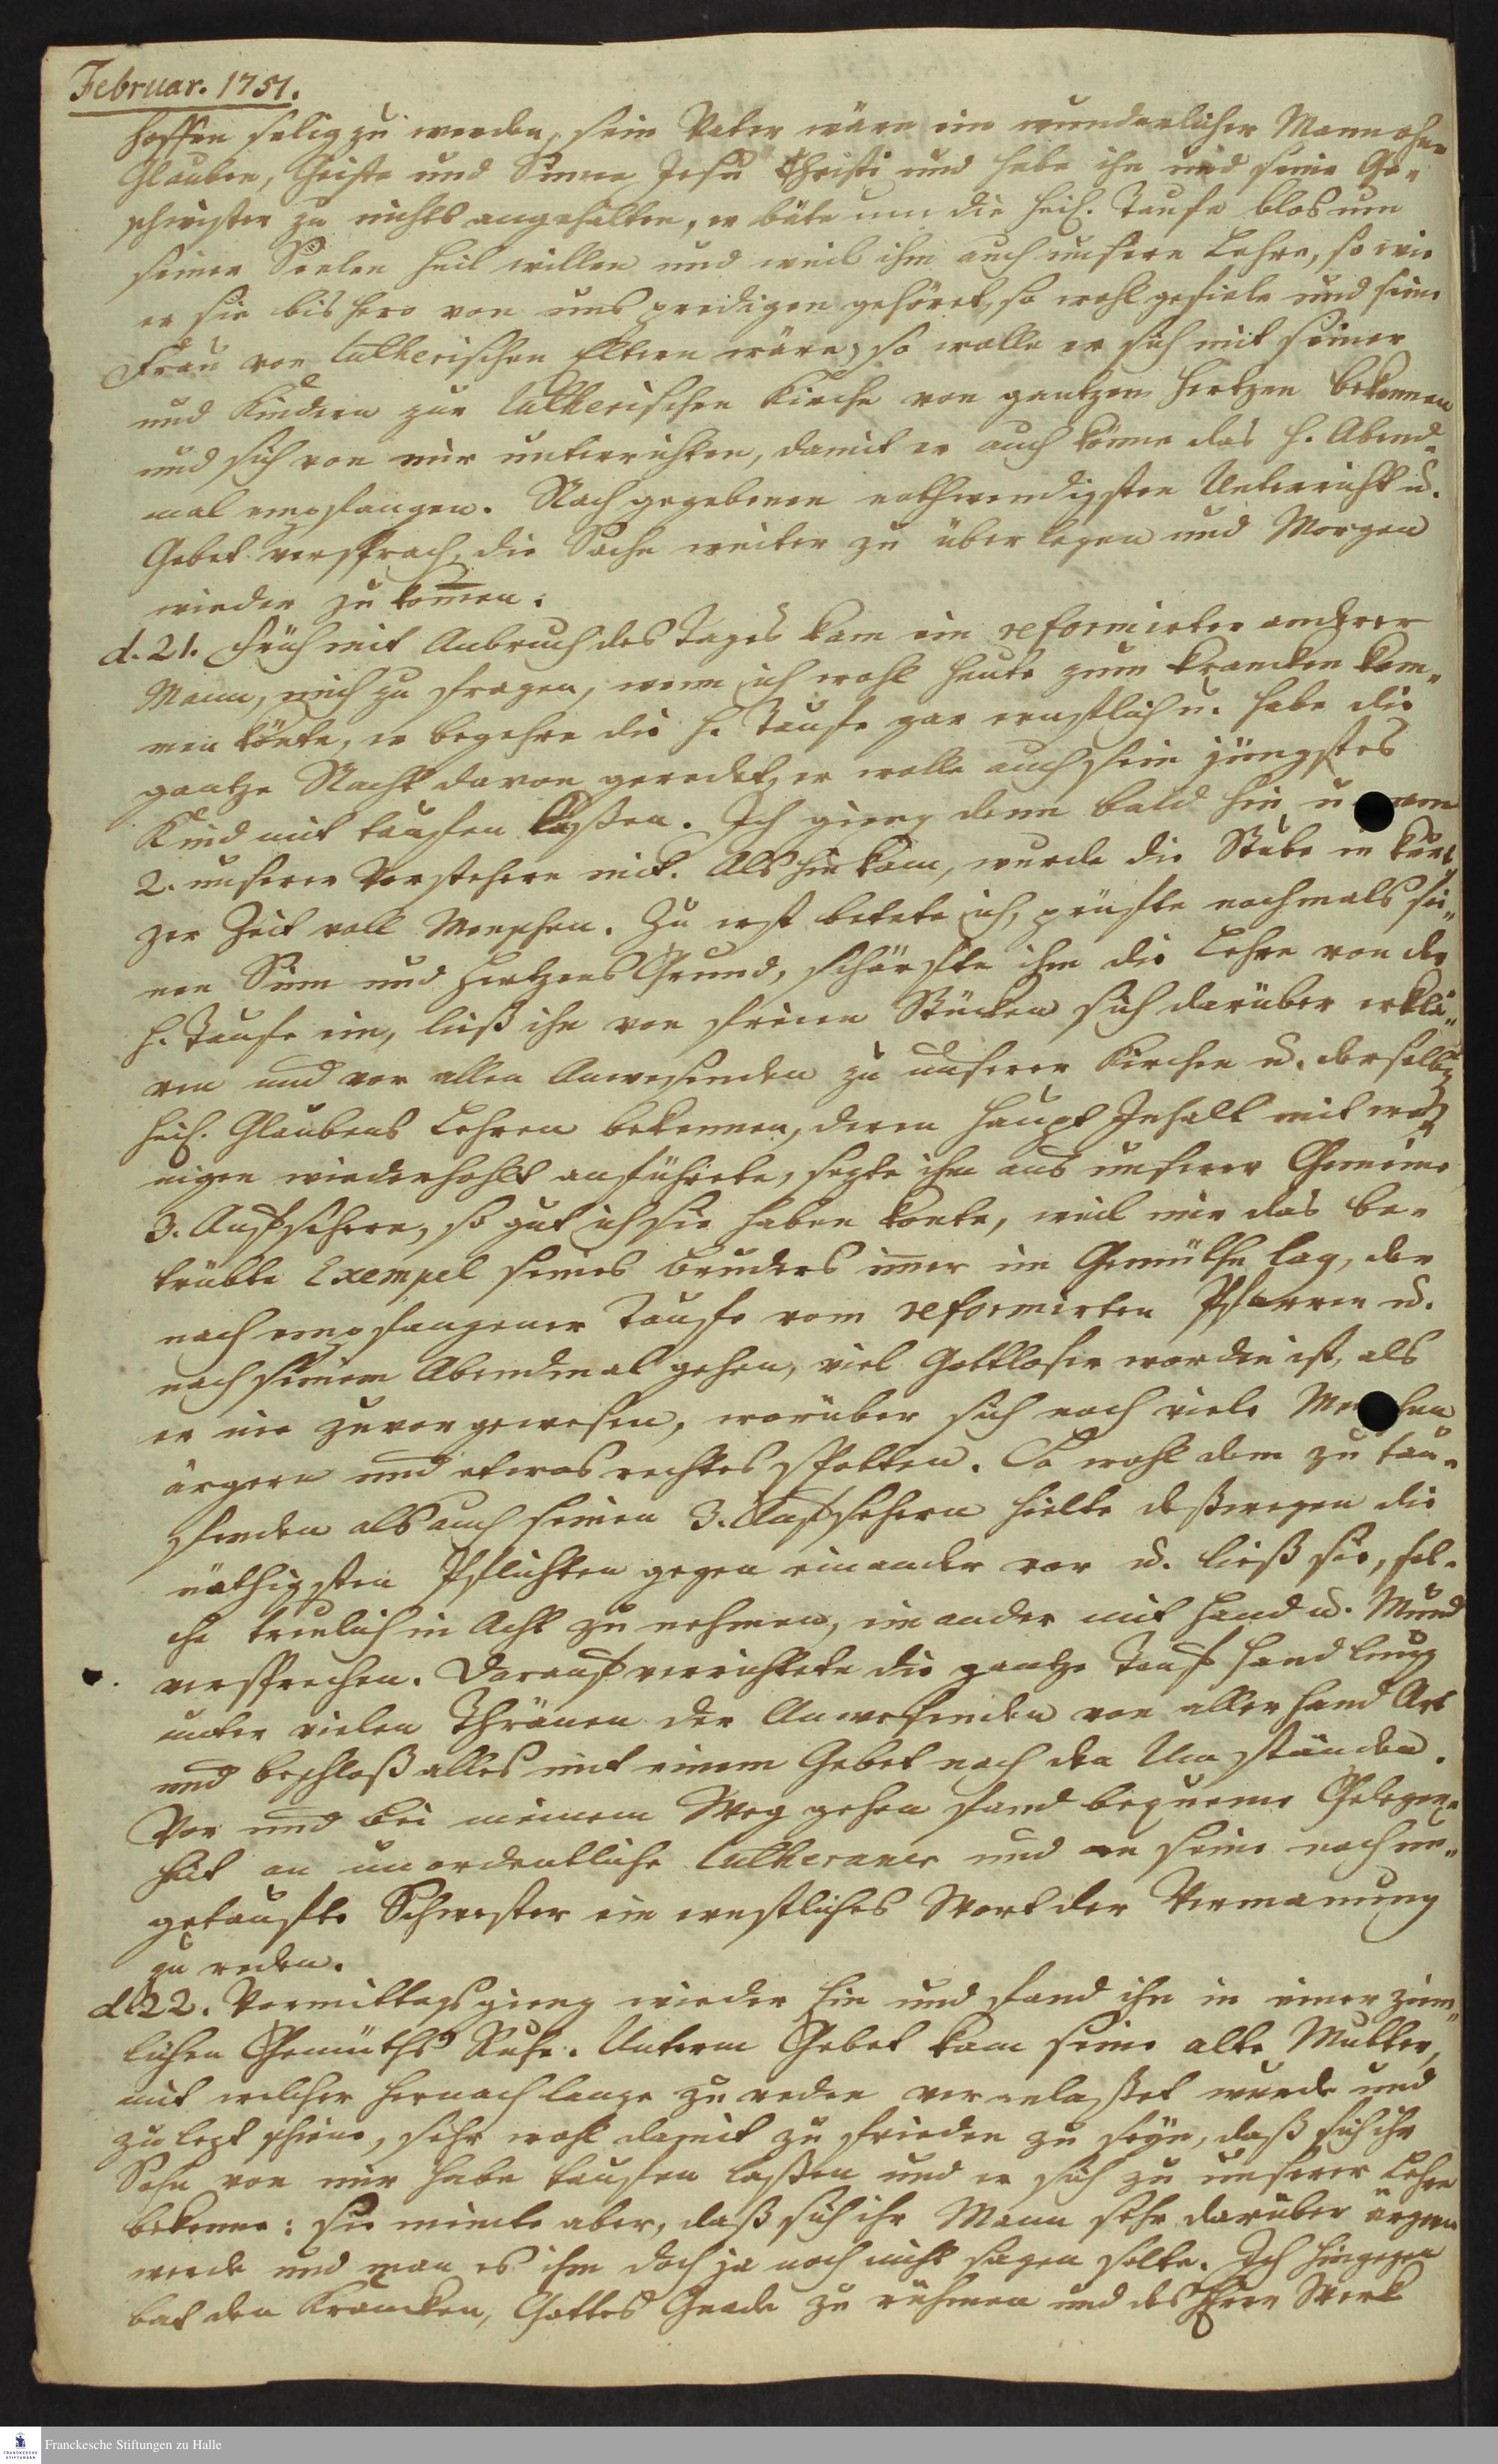 Februar. 1751.
hoffen selig zu werden, sein Vater wäre ein wunderlicher Mann ohne
Glauben, Geiste und Sinne Jesu Christi und habe ihn und seine Ge-
schwister zu nichts angehalten, er bäte um die heil. Taufe blos um
seiner Seelen Heil willen und weil ihm auch unsere Lehre, so wie
er sie bishero von uns predigen gehöret, so wohl gefiele und seine
Frau von lutherischen Eltern wäre, so wolle er sich mit seiner
und Kindern zur lutherischen Kirche von gantzem Hertzen bekennen
und sich von mir unterrichten, damit er auch könne das H. Abend-
mal empfangen. Nach gegebenen nothwendigsten Unterricht u.
Gebet versprach, die Sache weiter zu überlegen und Morgen
wieder zu kom̄en.
d. 21. Früh mit Anbruch des Tages kam ein reformirter anderer
Mann, mich zu fragen, wenn ich wohl heute zum Krancken kom-
men könte, er begehre die H. Taufe gar ernstlich u. habe die
gantze Nacht davon geredet, er wolle auch sein jüngstes
Kind mit taufen laßen. Ich gieng denn bald hin u
2. unserer Vorstehern mit. Als hin kam, wurde die Stube in kur-
zer Zeit voll Menschen. Zu erst betete ich, prüfte nochmals sei-
nen Sinn und Hertzens Grund, schärfte ihm die Lehre von der
H. Taufe ein, ließ ihn von freien Stücken sich darüber erklä-
ren und vor allen Anwesenden zu unserer Kirchen u. derselben
heil. Glaubens Lehren bekennen, deren Haupt Inhalt mit we-
nigen wiederhohlt anführete, sezte ihm aus unserer Gemeine
3. Aufsehere, so gut ich sie haben konte, weil mir das be-
trübte Exempel seines Bruders im̄er im Gemüthe lag, der
nach empfangener Taufe vom reformirten Pfarren u.
nach seinem Abendmal gehen, viel Gottloser worden ist, als
er nie zuvor gewesen, worüber sich noch viele Menschen
ärgern und etwas rechtes spotten. So wohl dem zu tau-
fenden als auch seinen 3. Aufsehern hielte deßwegen die
nöthigsten Pflichten gegen einander vor u. ließ sie, sol-
che treulich in Acht zu nehmen, einander mit Hand u. Mund
versprechen. Darauf verrichtete die gantze Tauf Handlung
unter vielen Thränen der Anwesenden von allerhand Art
und beschloß alles mit einem Gebet nach den Umständen.
Vor und bei meinem Weg gehen fand bequeme Gelegen-
heit an unordentliche Lutheraner und an seine noch un-
getaufte Schwester ein ernstliches Wort der Vermanung
zu reden.
d. 22. Vormittags gieng wieder hin und fand ihn in einer ziem-
lichen Gemüths Ruhe. Unterm Gebet kam seine alte Mutter,
mit welcher hernach lange zu reden veranlaßet wurde und
zu lezt schiene, sehr wohl damit zu frieden zu seyn, daß sich ihr
Sohn von mir habe taufen laßen und er sich zu unserer Lehre
bekenne: sie meinte aber, daß sich ihr Mann sehr darüber ärgern
werde und man es ihm doch ja noch nicht sagen solte. Ich hingegen
bat den Krancken, Gottes Gnade zu rühmen und des Herrn Werk
Franckesche Stiftungen zu Halle